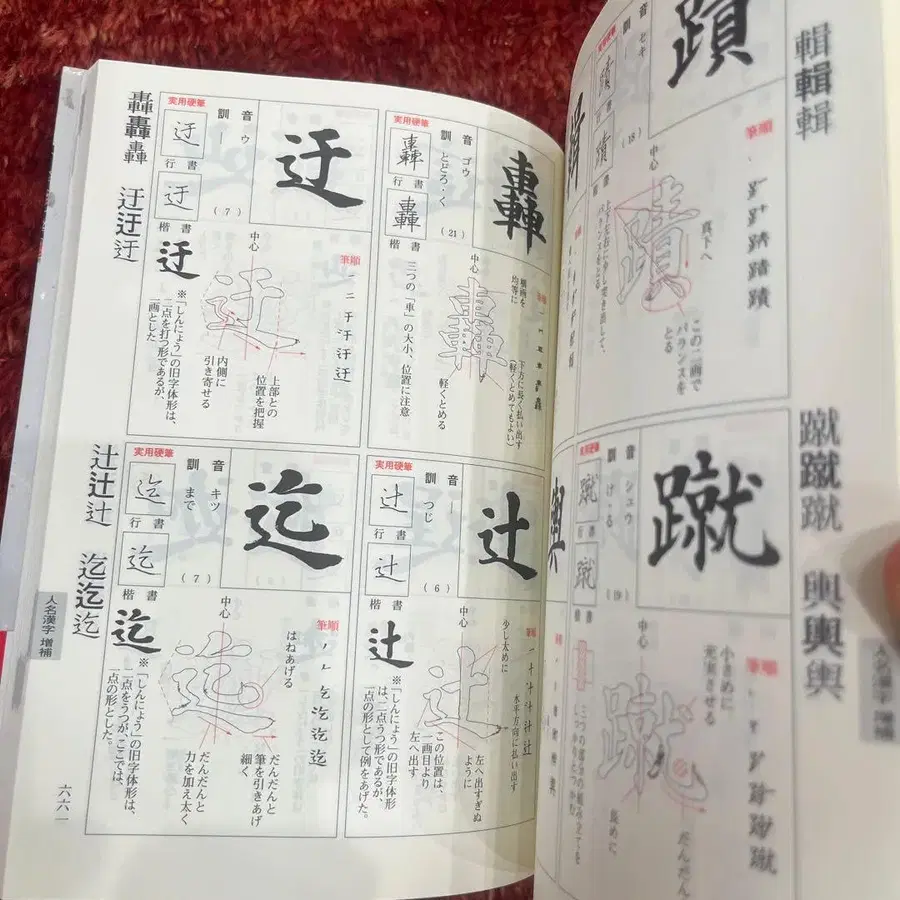 輯輯輯
蹴蹴蹴
輿輿輿
人名漢字 増補
蹟
音 セキ
訓
(18)
実用硬筆
中心
真下へ
この二画で
バランスを
とる
筆順
蹴
音 シュウ
訓 け・る
(19)
実用硬筆
蹴
行書
蹴
中心
小さめに
充実させる
筆順
長めに
だんだん
轟轟轟
迂迂迂
辻辻辻
迄迄迄
人名漢字 増補
六六一
轟
音 ゴウ
訓 とどろ・く
(21)
実用硬筆
轟
行書
轟
楷書
筆順
中心
横画を
均等に
下方に長く払い出す
(軽くとめてもよい)
軽くとめる
三つの「車」の大小、位置に注意
迂
音 ウ
訓 ―
(7)
実用硬筆
迂
行書
迂
楷書
迂
筆順
中心
上部との
位置を把握
内側に
引き寄せる
※「しんにょう」の旧字体形は、
二点を打つ形であるが、
一画とした
辻
音 ―
訓 つじ
(6)
実用硬筆
辻
行書
辻
楷書
辻
筆順
中心
少し太めに
水平方向に払い出す
左へ出すぎぬ
ように
この位置は、
一画目より
左へ出す
※「しんにょう」の旧字体形
は、二点うつ形であるが、
一点の形として例をあげた。
迄
音 キツ
訓 まで
(7)
実用硬筆
迄
行書
迄
楷書
迄
筆順
中心
はねあげる
だんだんと
筆を引きあげ
細く
だんだんと
力を加え太く
※「しんにょう」の旧字体形は、
二点をうつが、ここでは、
一点の形とした。